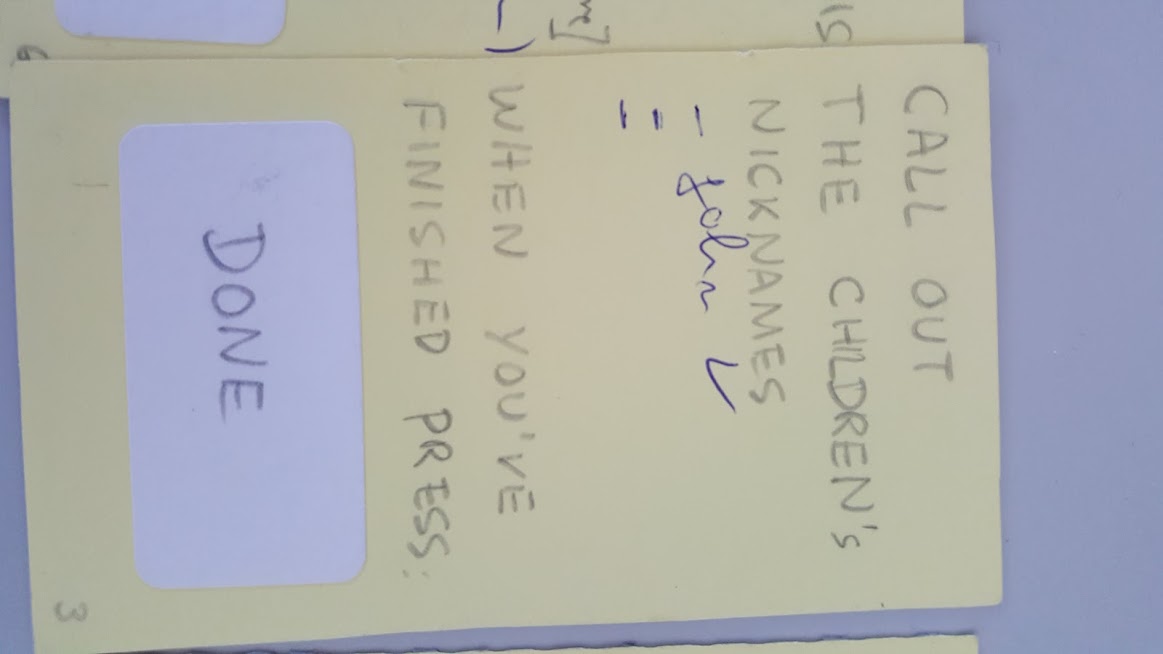 CALL OUT
THE CHILDREN's
NICKNAMES
- John ✓
WHEN YOU'VE
FINISHED PRESS:
DONE
3
6
is